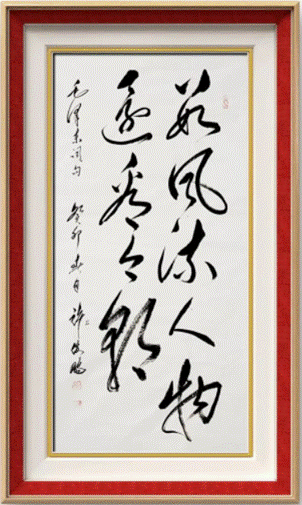 数风流人物
还看今朝
毛泽东词句 癸卯春月 许